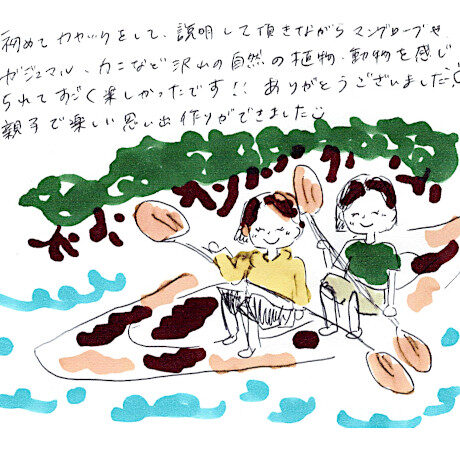 初めてカヤックをして、説明して頂きながらマングローブや
ガジュマル、カニなど沢山の自然の植物、動物を感じ
られてすごく楽しかったです!! ありがとうございました
親子で楽しい思い出作りができました